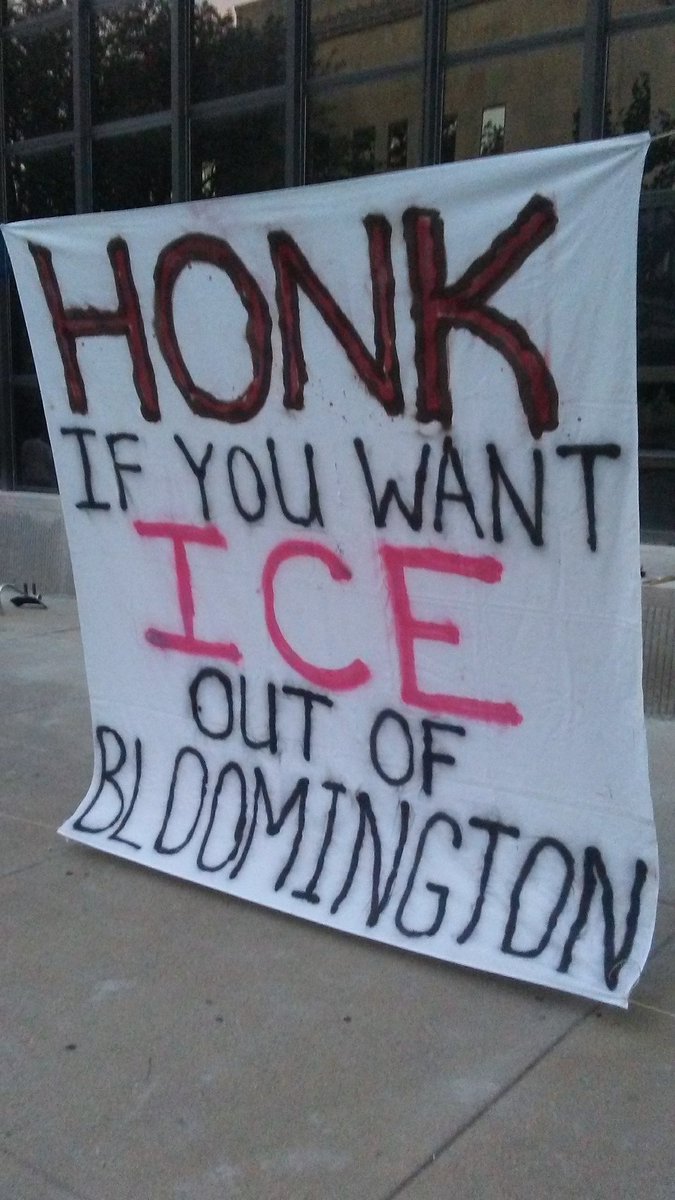 HONK
IF YOU WANT
ICE
OUT OF
BLOOMINGTON